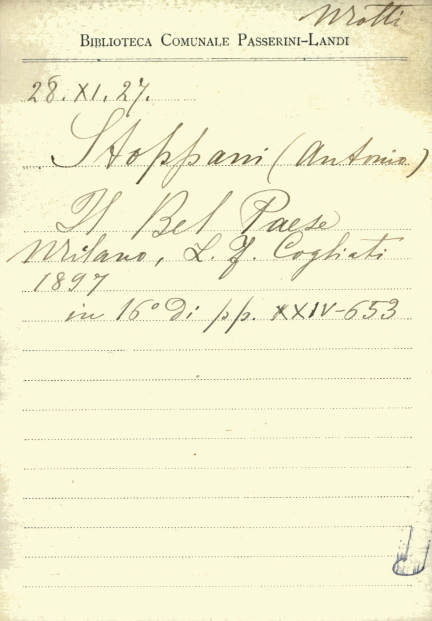 Biblioteca Comunale Passerini-Landi
28. XI. 27.
Stoppani (Antonio)
Il Bel Paese
Milano, L. F. Cogliati
1897
in 16° di pp. XXIV-653